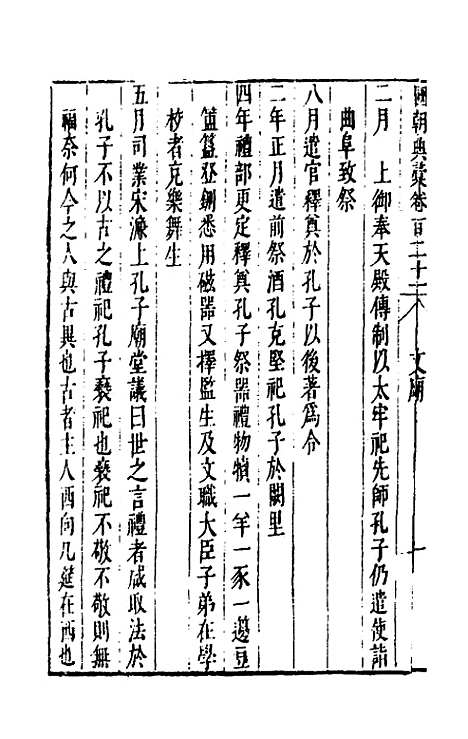 國朝典彙卷一百二十二 文廟 一
二月 上御奉天殿傳制以太牢祀先師孔子仍遣使詣
曲阜致祭
八月遣官釋奠於孔子以後著爲令
二年正月遣前祭酒孔克堅祀孔子於闕里
四年禮部更定釋奠孔子祭器禮物犢一羊一豕一籩豆
簠簋豋鉶悉用磁器又擇監生及文職大臣子弟在學
校者充樂舞生
五月司業宋濂上孔子廟堂議曰世之言禮者咸取法於
孔子不以古之禮祀孔子褻祀也褻祀不敬不敬則無
福奈何今之人與古異也古者主人西向几筵在西也